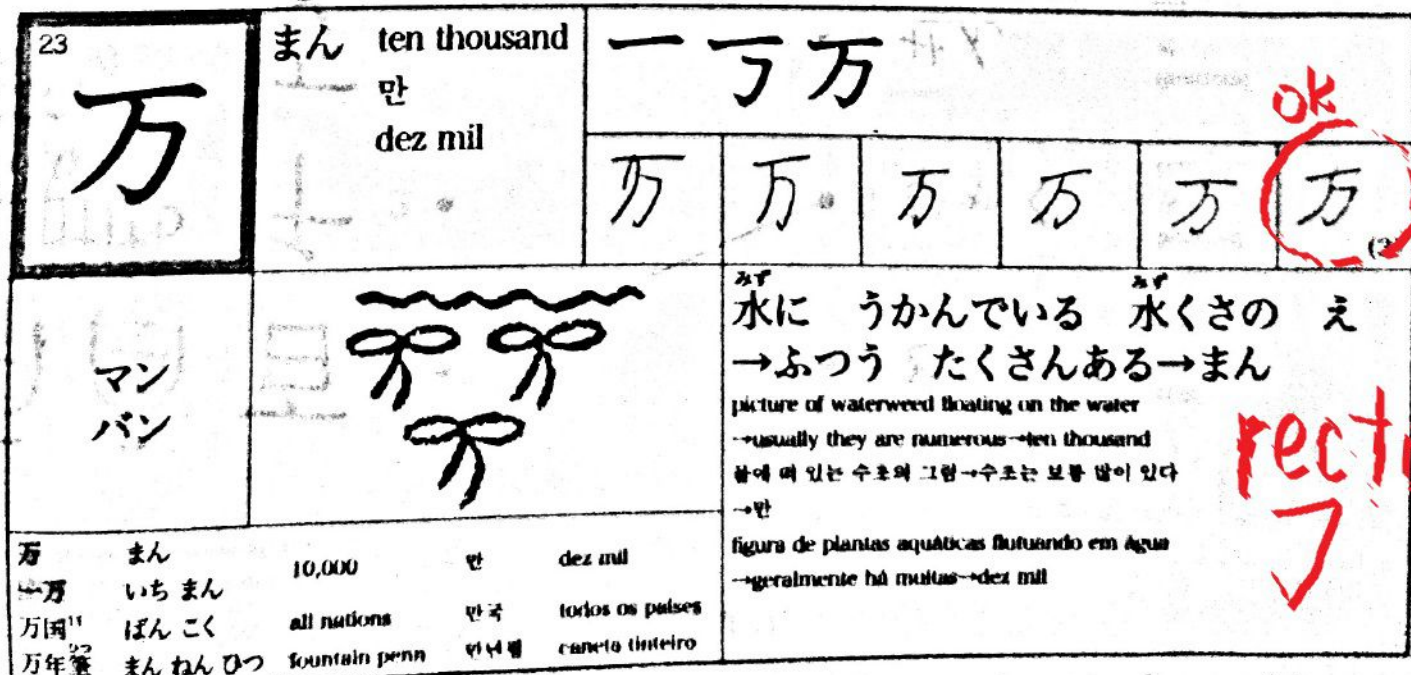 23
万
まん ten thousand
만
dez mil
一 丂 万
ok
万 万 万 万 万 万
マン
バン
みず みず
水に うかんでいる 水くさの え
→ふつう たくさんある→まん
picture of waterweed floating on the water
→usually they are numerous→ten thousand
물에 떠 있는 수초의 그림→수초는 보통 많이 있다
→만
figura de plantas aquáticas flutuando em água
→geralmente há muitas→dez mil
万 まん 10,000 만 dez mil
一万 いち まん
万国11 ばん こく all nations 만국 todos os países
ひつ
万年筆 まん ねん ひつ fountain penn 만년필 caneta tinteiro